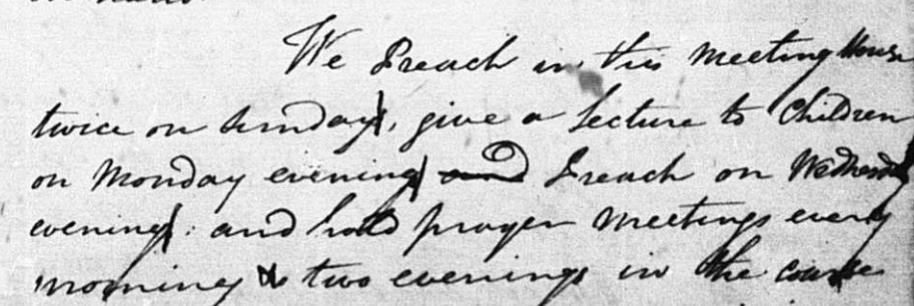 We Preach in this meeting House
twice on Sunday, give a lecture to Children
on Monday evening and Preach on Wednesday
evening: and hold prayer meetings every
morning & two evenings in the course